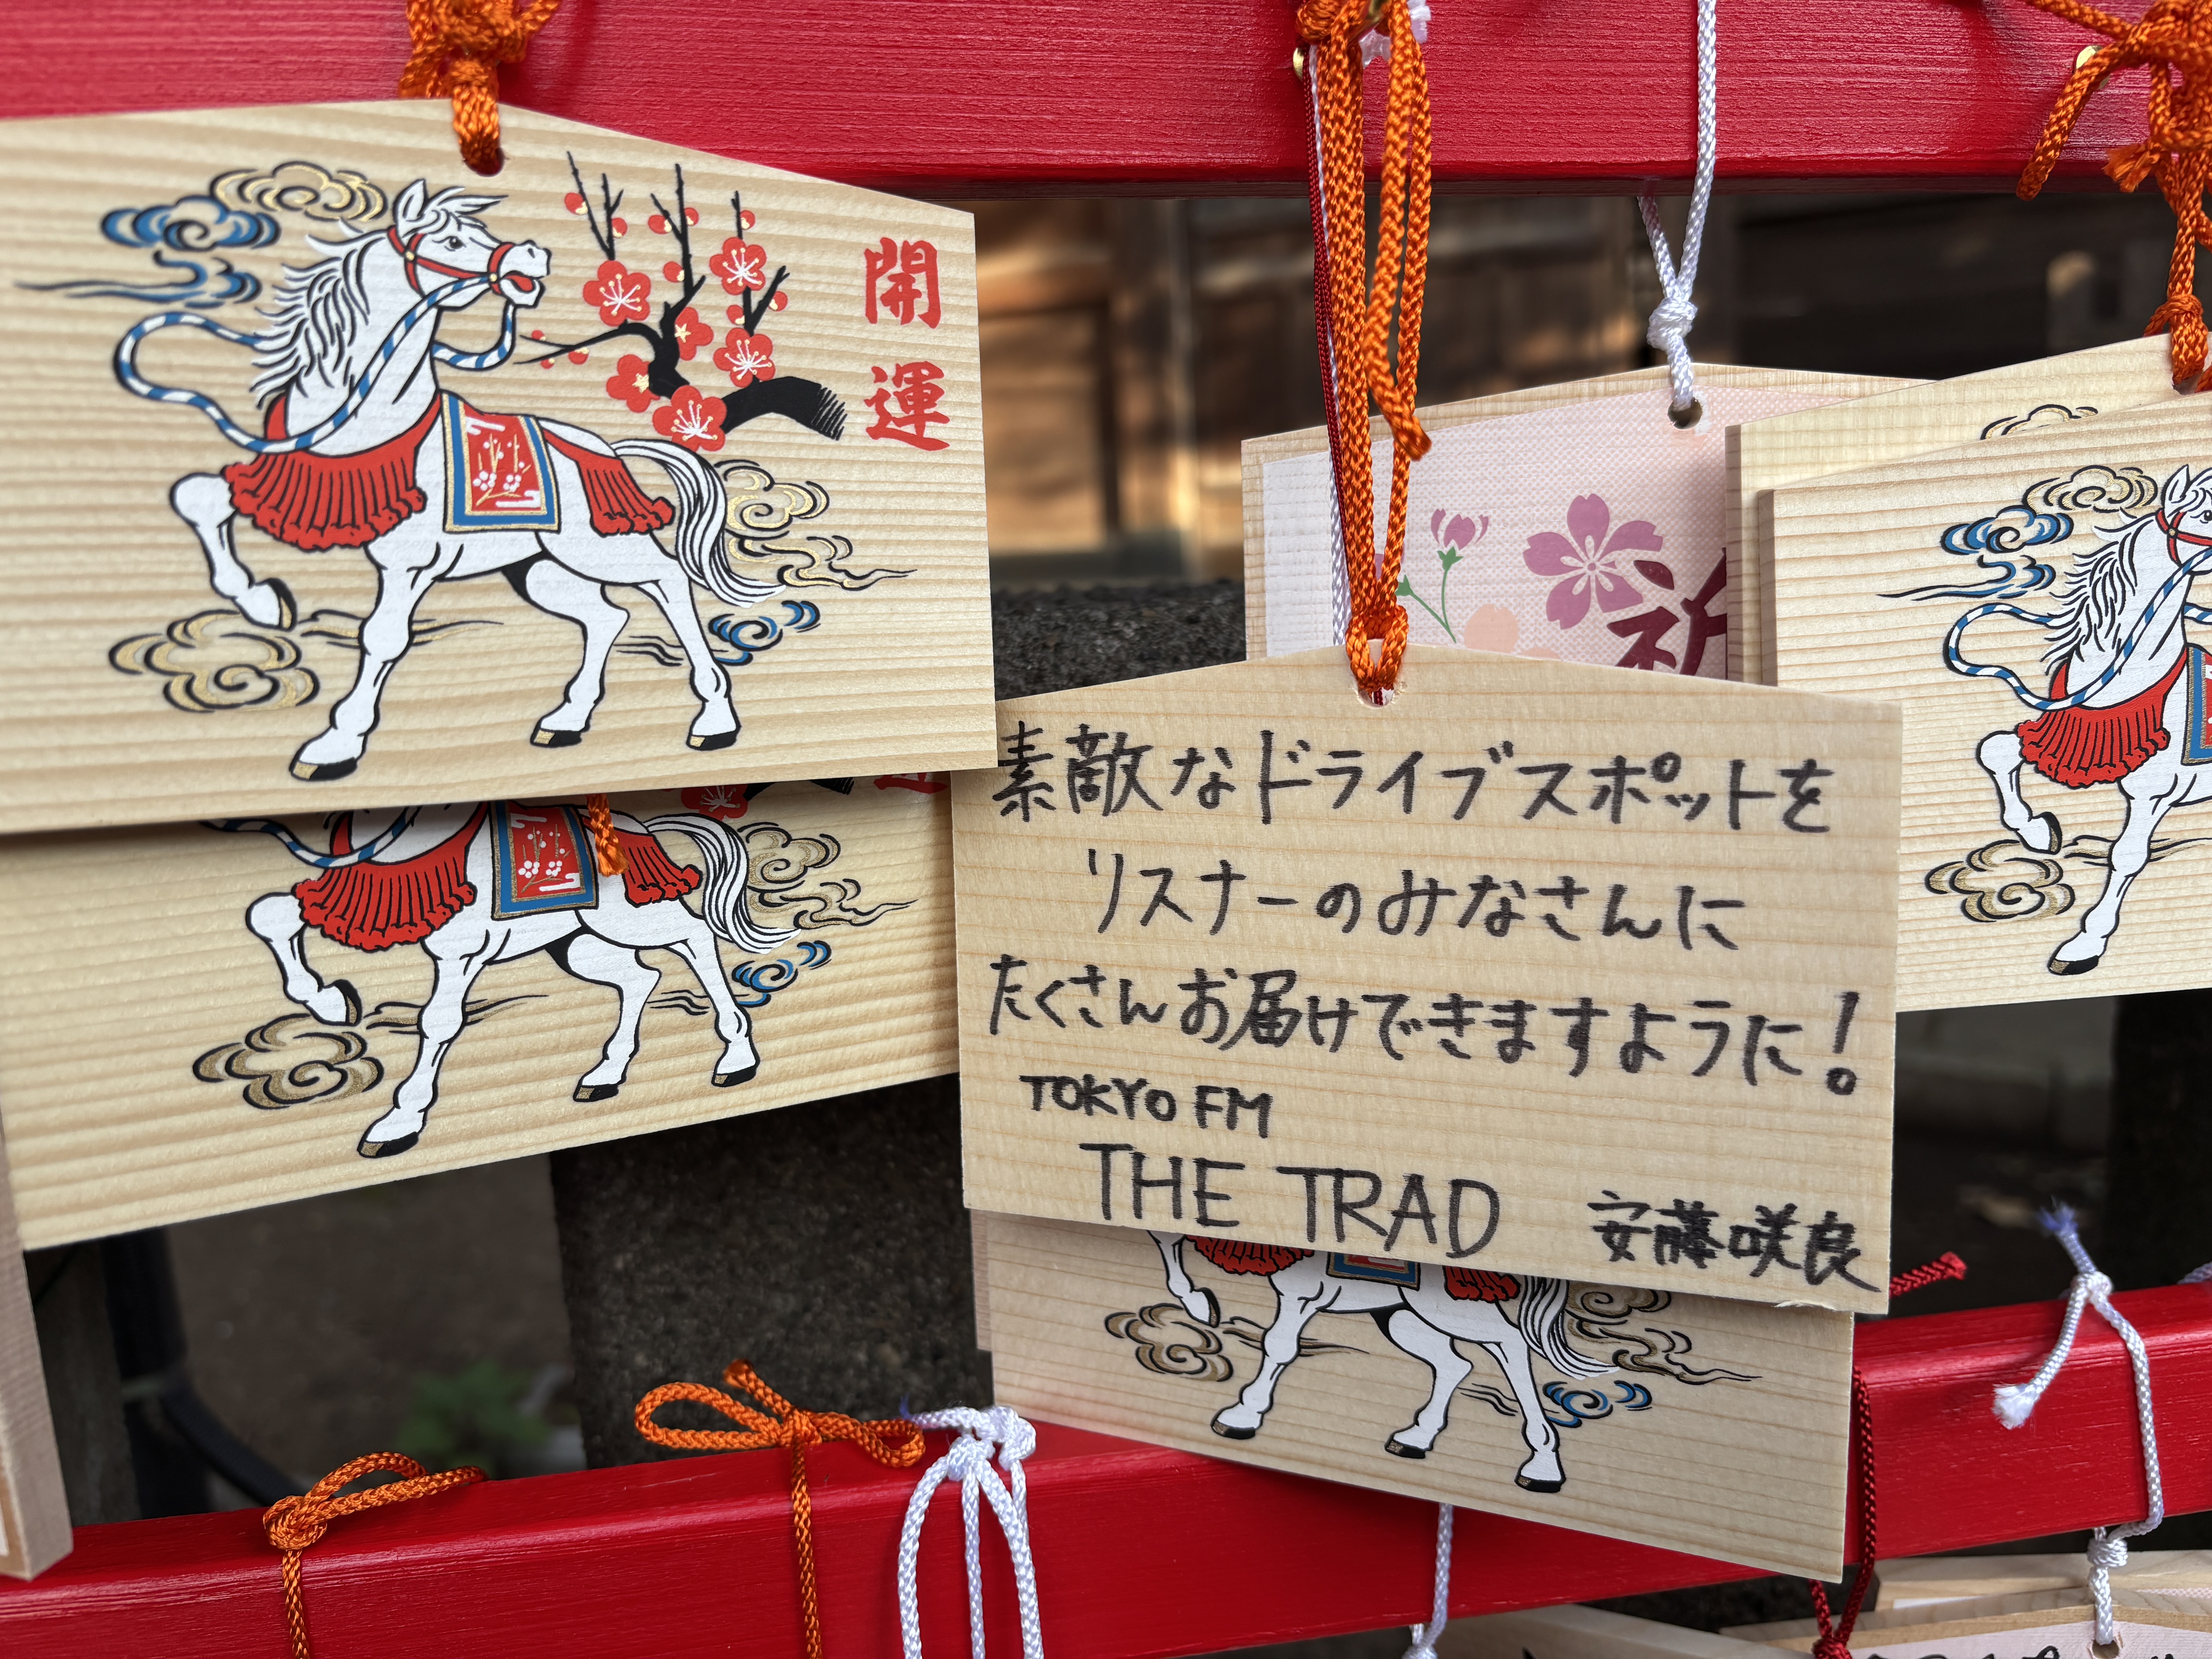 開
運
祈
素敵なドライブスポットを
リスナーのみなさんに
たくさんお届けできますように!
TOKYO FM
THE TRAD 安藤咲良